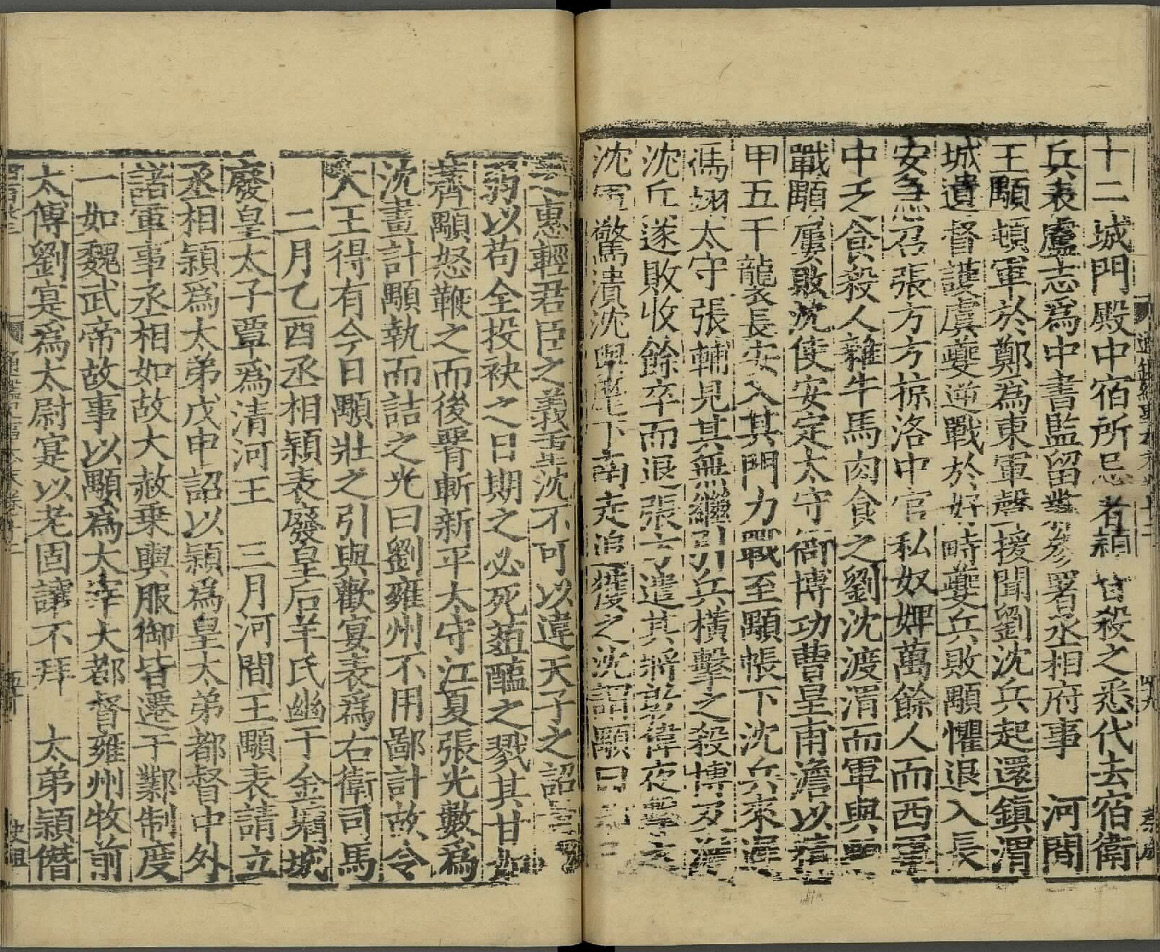 十二城門殿中宿所忌者穎皆殺之悉代去宿衛
兵表盧志為中書監留鄴參署丞相府事　河間
王顒頓軍於鄭為東軍聲援聞劉沈兵起還鎮渭
城遣督護虞夔逆戰於好畤夔兵敗顒懼退入長
安急召張方方掠洛中官私奴婢萬餘人而西軍
中乏食殺人雜牛馬肉食之劉沈渡渭而軍與
戰顒屢敗沈使安定太守衙博功曹皇甫澹以精
甲五千襲長安入其門力戰至顒帳下沈兵來遲
馮翊太守張輔見其無繼引兵橫擊之殺博及澹
沈兵遂敗收餘卒而退張方遣其將敦偉夜擊之
沈軍驚潰沈與麾下南走追獲之沈謂顒曰
之惠輕君臣之義重沈不可以違天子之詔
弱以苟全投袂之日期之必死葅醢之戮其甘如
薺顒怒鞭之而後腰斬新平太守江夏張光數為
沈畫計顒執而詰之光曰劉雍州不用鄙計故令
大王得有今日顒壯之引與歡宴表為右衛司馬
二月乙酉丞相穎表廢皇后羊氏幽于金墉城
廢皇太子覃為清河王　三月河間王顒表請立
丞相穎為太弟戊申詔以穎為皇太弟都督中外
諸軍事丞相如故大赦乗輿服御皆遷于鄴制度
一如魏武帝故事以顒為大宰大都督雍州牧前
太傅劉寔為太尉寔以老固讓不拜　太弟穎僭